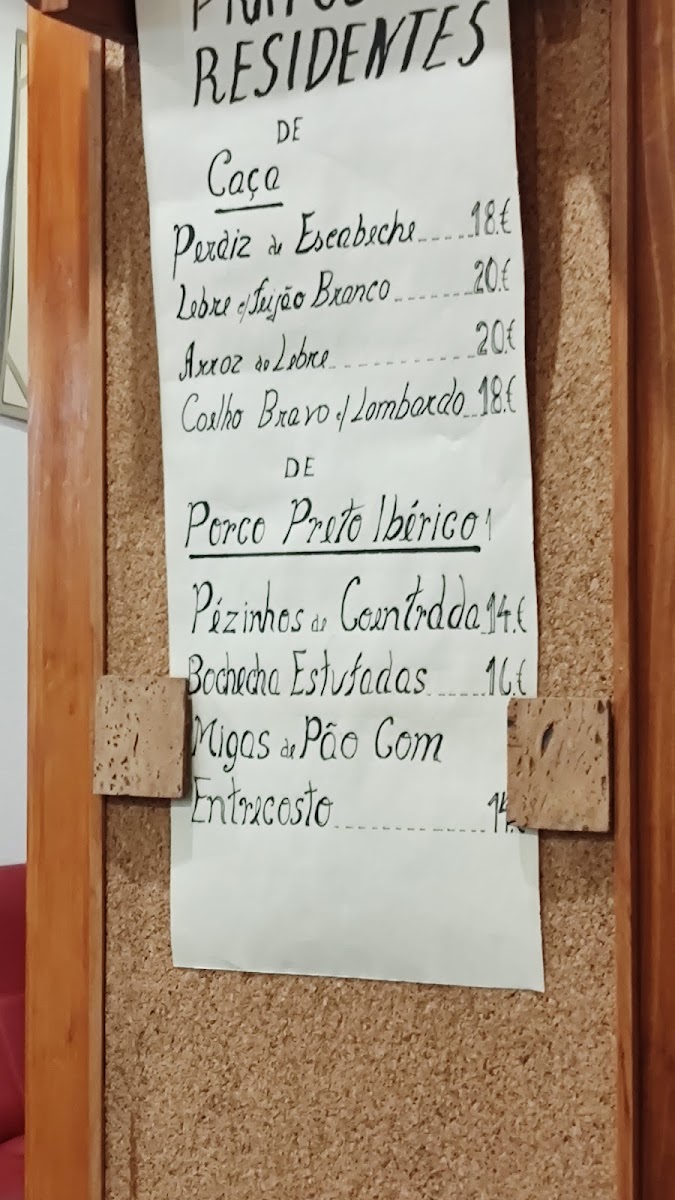 PRATOS
RESIDENTES
DE
Caça
Perdiz de Escabeche.....18.€
Lebre c/feijão Branco.......20.€
Arroz de Lebre............20.€
Coelho Bravo c/Lombardo..18.€
DE
Porco Preto Ibérico
Pézinhos de Coentrada.14.€
Bochecha Estufadas......16.€
Migas de Pão Com
Entrecosto..............14.€